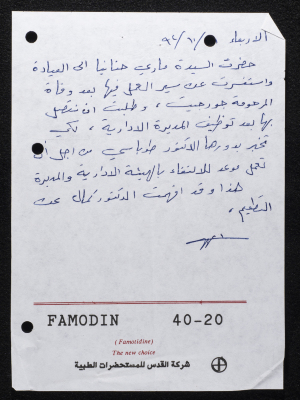 الاربعاء ٩٤/١٠/
حضرت السيدة ماري حنانيا الى العيادة
واستفسرت عن سير العمل فيها بعد وفاة
المرحومة جورجيت، وطلبت ان نتصل
بها بعد توظيف المديرة الادارية، لكي
تخبر بدورها الدكتور طوباسي من اجل ان
تعمل موعد للالتقاء بالهيئة الادارية والمديرة
هذا وقد افهمت الدكتور كمال عن
التنظيم،
FAMODIN 40-20
(Famotidine)
The new choice
شركة القدس للمستحضرات الطبية